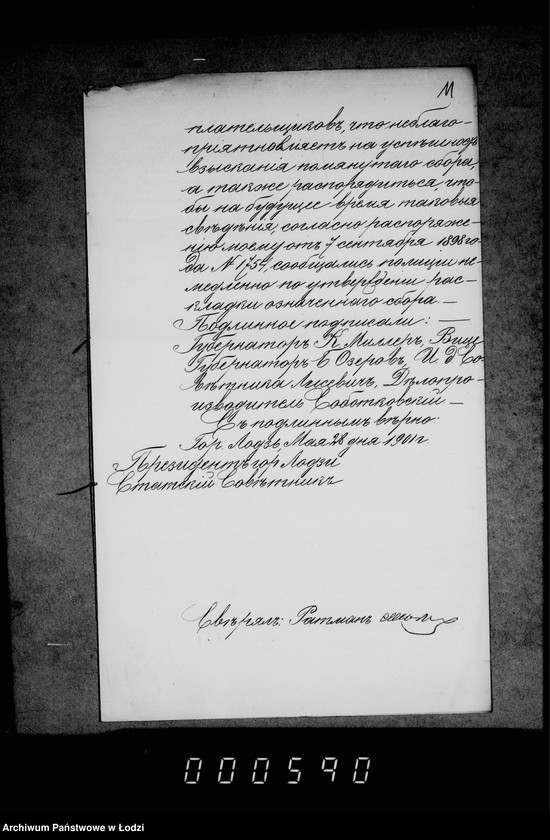 11
плательщиковъ, что неблаго-
приятно вліяетъ на успѣшность
взысканія помянутаго сбора,
а также распорядиться, что-
бы на будущее время таковыя
свѣдѣнія, согласно распоряже-
нію моему отъ 7 сентября 1898 го-
да № 1754, сообщались полиціи не-
медленно по утвержденіи рас-
кладки означеннаго сбора. —
Подлинное подписали: —
Губернаторъ К Миллеръ, Вице
Губернаторъ Б Озеровъ, И д Со-
вѣтника Лисевичъ, Дѣлопро-
изводитель Соботковскій —
Съ подлиннымъ вѣрно:
Гор Лодзь, Мая 28 дня 1901 г
Президентъ гор Лодзи
Статскій Совѣтникъ
Свѣрялъ: Ратманъ
000590
Archiwum Państwowe w Łodzi